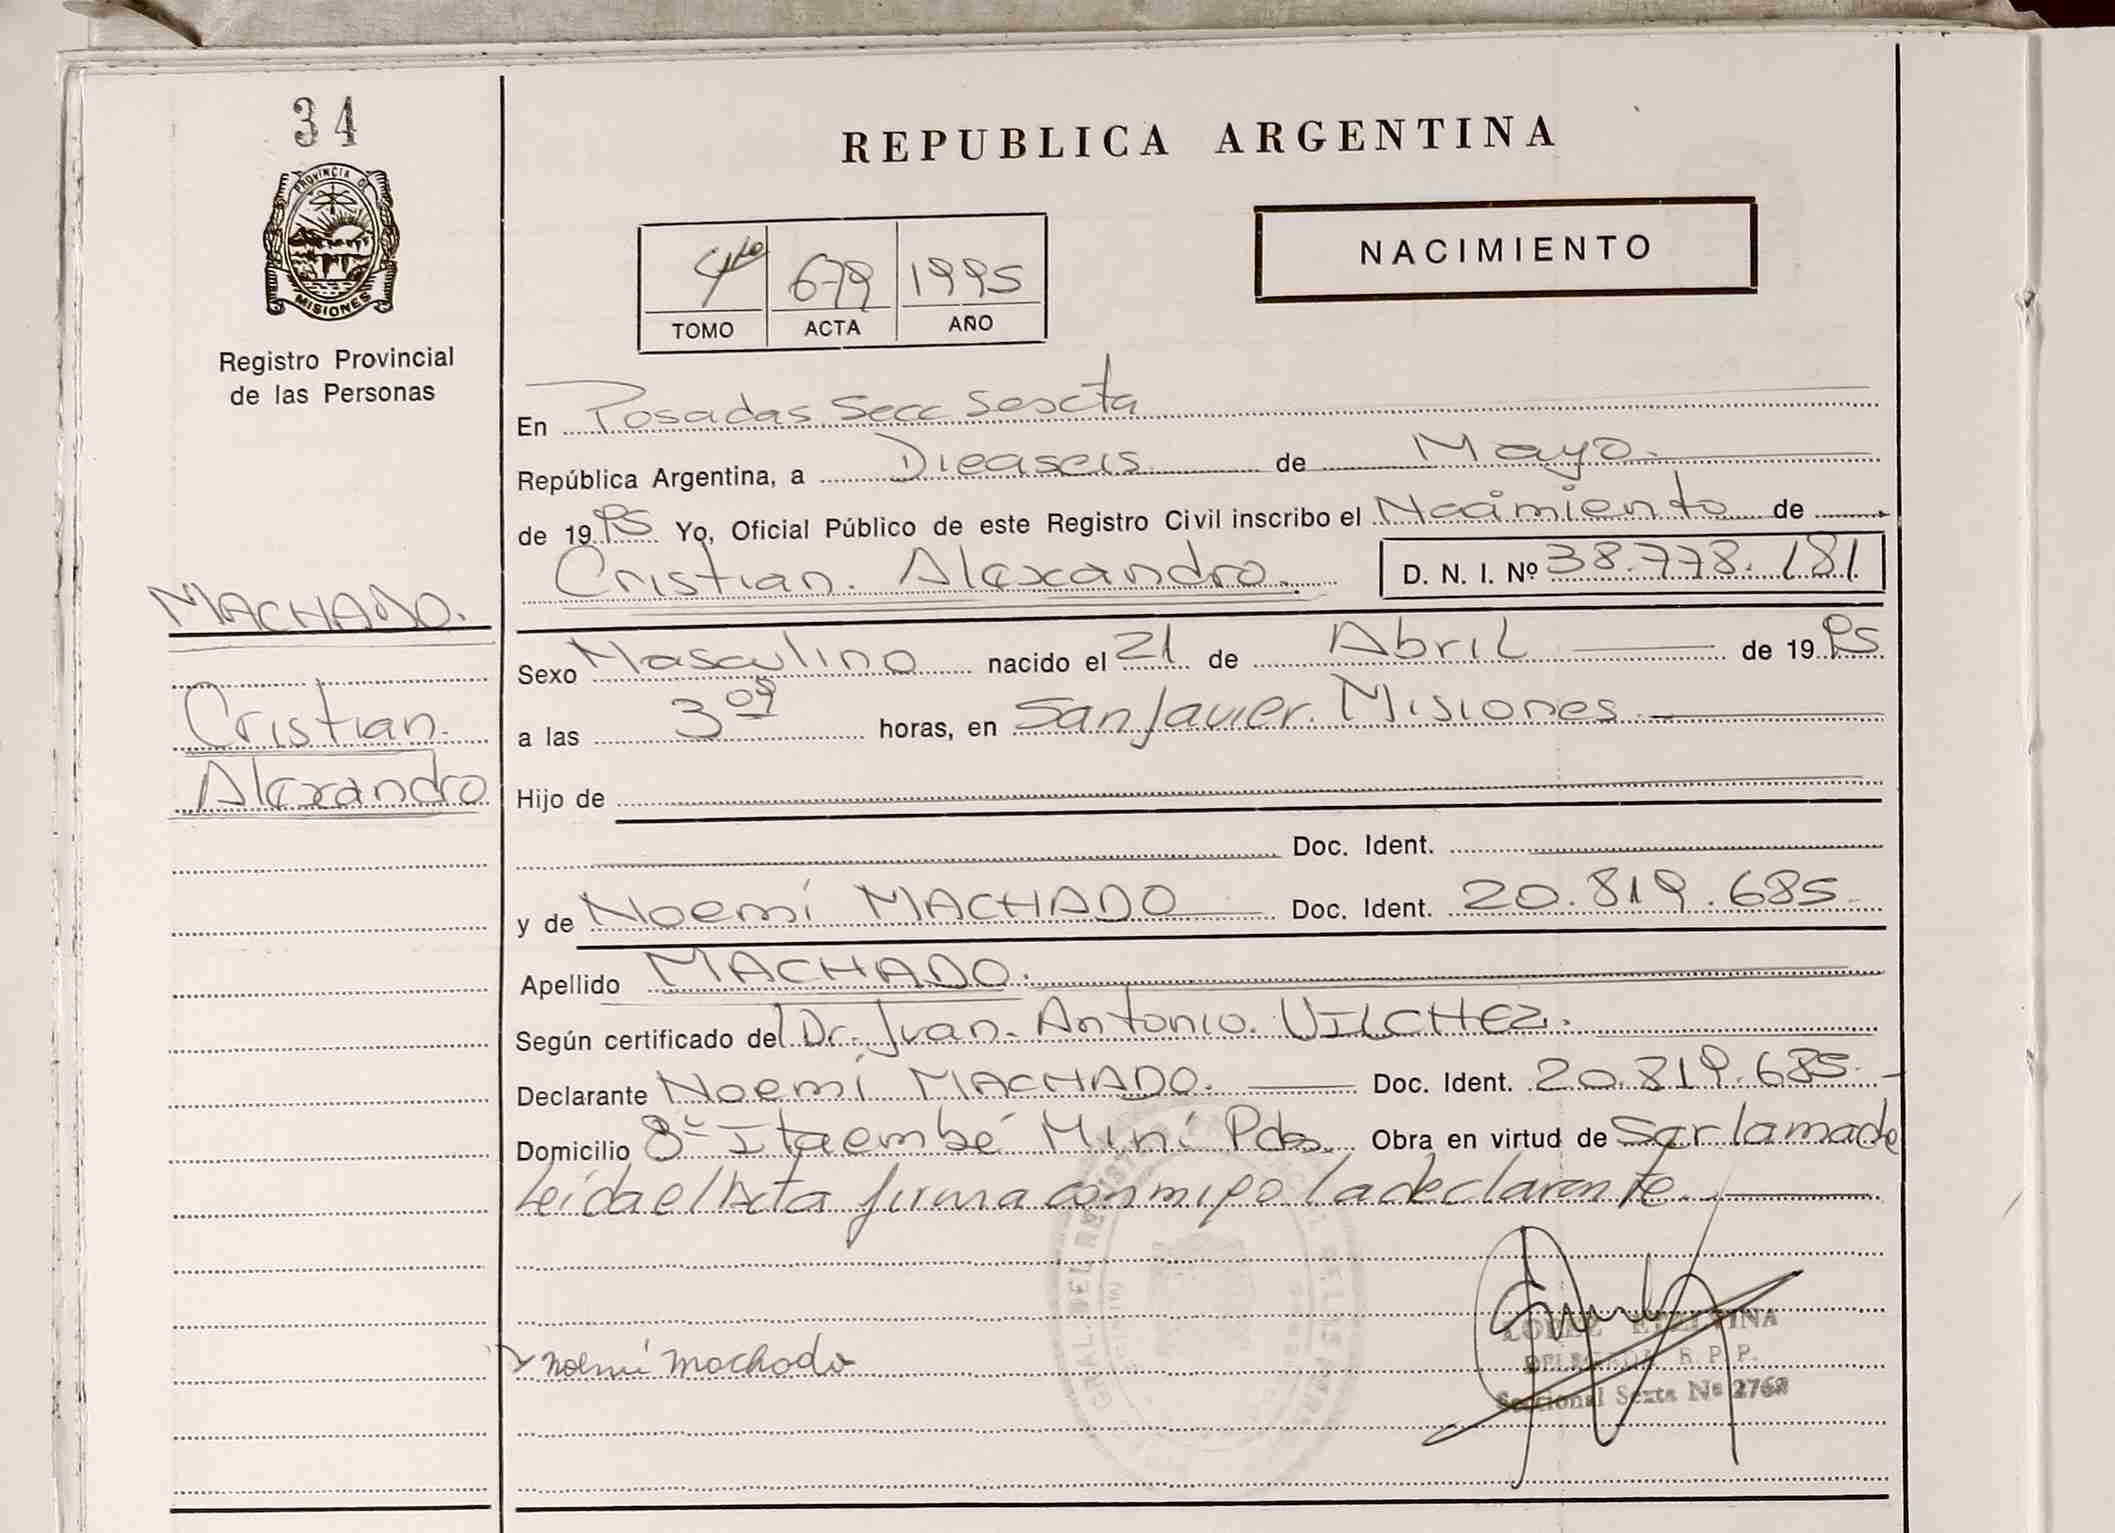 34
PROVINCIA DE
MISIONES
Registro Provincial
de las Personas
MACHADO.
Cristian.
Alexandro
REPUBLICA ARGENTINA
4to 679 1995
TOMO ACTA AÑO
NACIMIENTO
En Posadas Secc Sexcta
República Argentina, a Dieaseis de Mayo.
de 1995 Yo, Oficial Público de este Registro Civil inscribo el Nacimiento de
Cristian. Alexandro. D. N. I. Nº 38.778.181
Sexo Masculino nacido el 21 de Abril de 1995
a las 3 09 horas, en San Javier. Misiones
Hijo de
Doc. Ident.
y de Noemí MACHADO Doc. Ident. 20.819.685
Apellido MACHADO.
Según certificado del Dr. Juan. Antonio. VILCHEZ.
Declarante Noemí MACHADO. Doc. Ident. 20.819.685
Domicilio 8- Itaembé Miní Pdas. Obra en virtud de Ser la madre
Leída el Acta firma conmigo la declarante.
Noemí Machado
LOPEZ ETELVINA
DELEGADA R. P. P.
Seccional Sexta Nº 2768